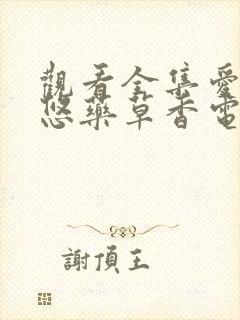 觀看全集愛
悠藥草香電
謝頂王